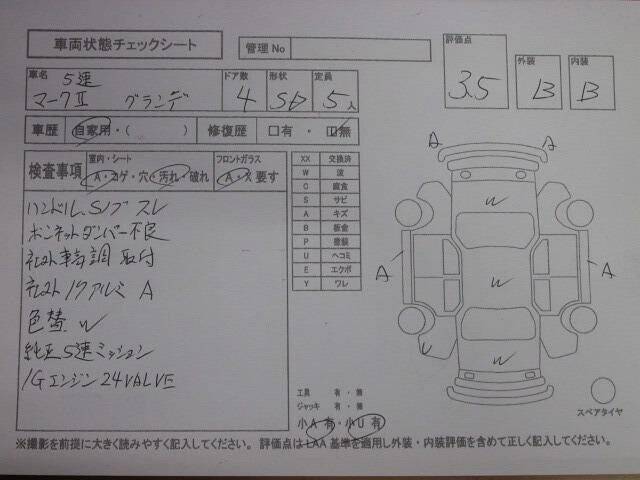 車両状態チェックシート
管理No
評価点
3.5
外装
B
内装
B
車名
5速
マークⅡ グランデ
ドア数
4
形状
SD
定員
5人
車歴 自家用・( ) 修復歴 口有 ・ 口無
検査事項
室内・シート
A・コゲ・穴・汚れ・破れ
フロントガラス
A・X要す
XX 交換済
W 波
C 腐食
S サビ
A キズ
B 板金
P 塗装
U ヘコミ
E エクボ
Y ワレ
ハンドル、Sノブ スレ
ボンネットダンパー不良
社外車高調 取付
社外アルミ A
色替 W
純正5速ミッション
1Gエンジン24VALVE
A
A
W
A
W
A
U
W
工具 有・無
ジャッキ 有・無
小A有・小U有
スペアタイヤ
※撮影を前提に大きく読みやすく記入してください。 評価点はLAA基準を適用し外装・内装評価を含めて正しく記入してください。